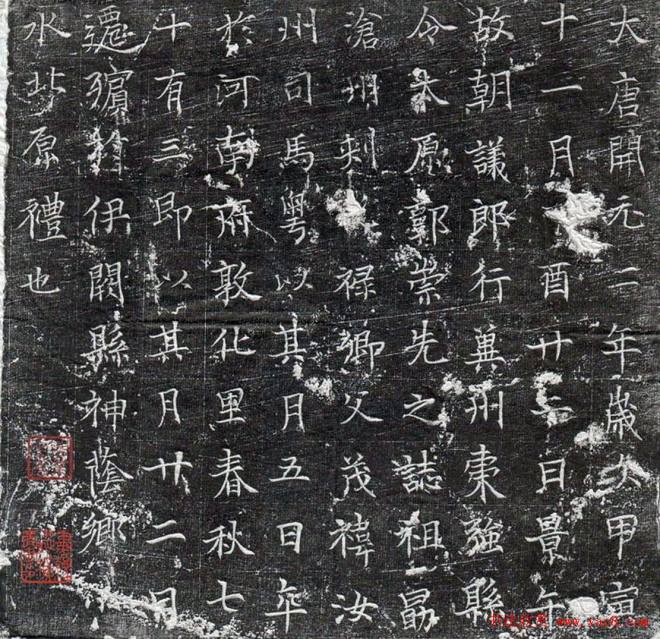 大唐開元二年歲次甲寅
十一月酉廿二日景午
故朝議郎行冀州棗強縣
令太原郭崇先之誌祖勗
滄州刾祿卿父茂禕汝
州司馬粵以其月五日卒
於河南府敦化里春秋七
十有三即以其月廿二日
遷殯於伊闕縣神蔭鄉
水北原禮也
书法欣赏 www.yac8.com